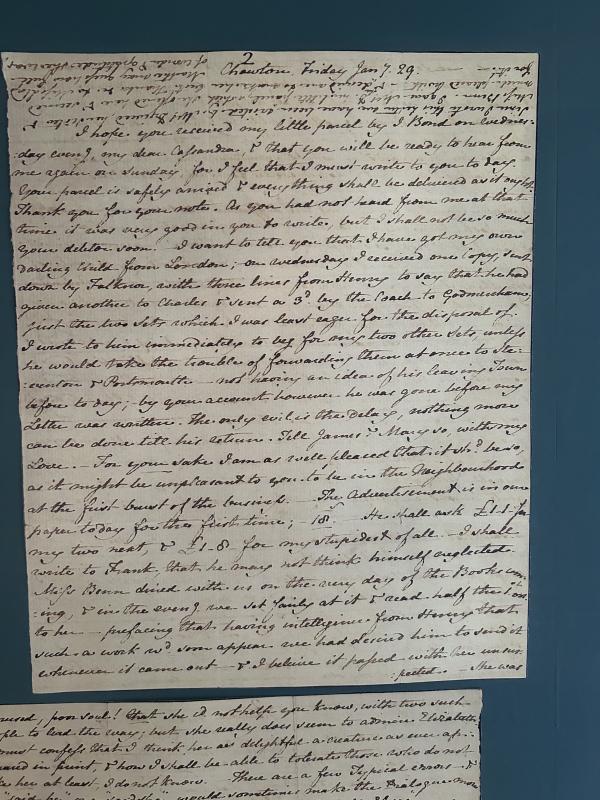 2
Chawton Friday Jany. 29.
I hope you received my little parcel by J. Bond on Wednes=
=day eveng, my dear Cassandra, & that you will be ready to hear from
me again on Sunday, for I feel that I must write to you to day.
Your parcel is safely arrived & everything shall be delivered as it ought.
Thank you for your note. As you had not heard from me at that
time it was very good in you to write, but I shall not be so much
your debtor soon. — I want to tell you that I have got my own
darling Child from London; — on Wednesday I received one Copy, sent
down by Falknor, with three lines from Henry to say that he had
given another to Charles & sent a 3d. by the Coach to Godmersham;
just the two Sets which I was least eager for the disposal of.
I wrote to him immediately to beg for my two other Sets, unless
he would take the trouble of forwarding them at once to Ste=
=venton & Portsmouth — not having an idea of his leaving Town
before to day; — by your account however he was gone before my
Letter was written. The only evil is the delay, nothing more
can be done till his return. Tell James & Mary so, with my
Love. — For your sake I am as well pleased that it shd. be so,
as it might be unpleasant to you to be in the Neighbourhood
at the first burst of the business. — The Advertisement is in our
paper to day for the first time; — 18s. — He shall ask £1-1- for
my two next, & £1-8- for my stupidest of all. — I shall
write to Frank, that he may not think himself neglected.
Miss Benn dined with us on the very day of the Books com=
=ing, & in the eveng we set fairly at it & read half the 1st vol.
to her — prefacing that having intelligence from Henry that
such a work wd. soon appear we had desired him to send it
whenever it came out — & I beleive it passed with her unsus=
:pected. — She was
mused, poor soul! that she cd not help you know, with two such
ple to lead the way; but she really does seem to admire Elizabeth.
must confess that I think her as delightful a creature as ever ap=
eared in print, & how I shall be able to tolerate those who do not
ke her at least, I do not know. — There are a few Typical errors — &
"said he" or a "said she" would sometimes make the Dialogue more